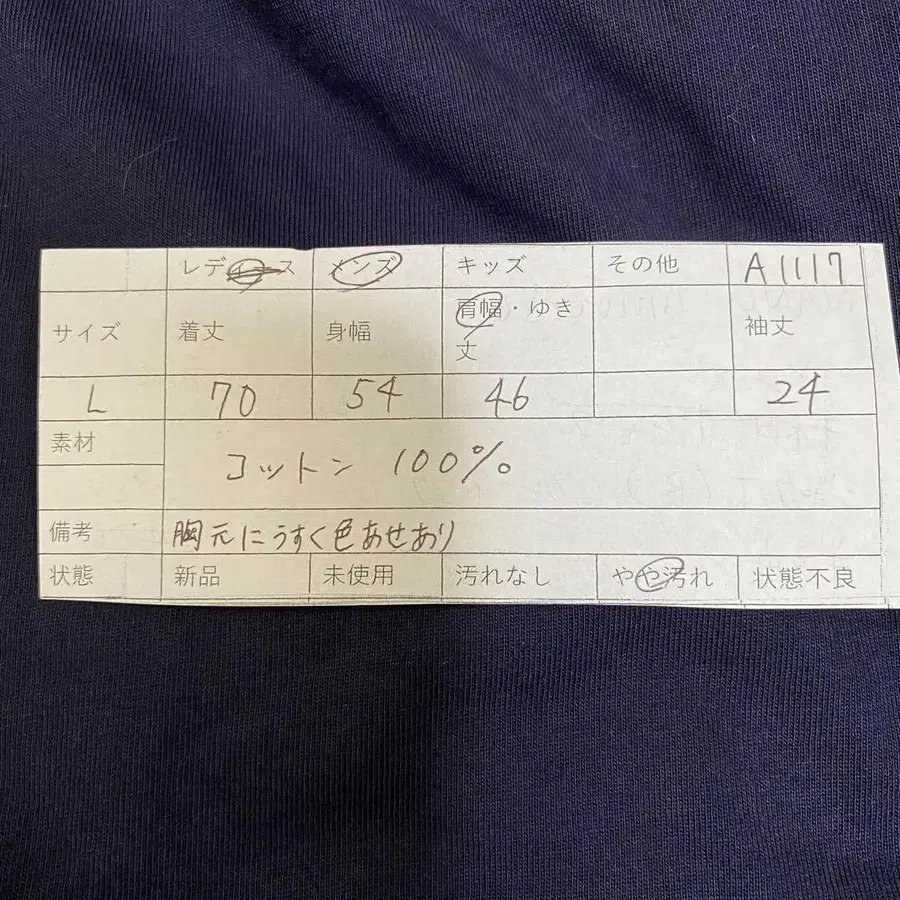 レディース メンズ キッズ その他 A1117
サイズ 着丈 身幅 肩幅・ゆき丈 袖丈
L 70 54 46 24
素材 コットン 100%
備考 胸元にうすく色あせあり
状態 新品 未使用 汚れなし やや汚れ 状態不良